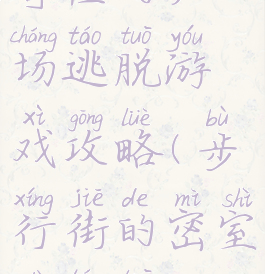 chǎng táo tuō yóu
场逃脱游
xì gōng lüè bù
戏攻略(步
xíng jiē de mì shì
行街的密室